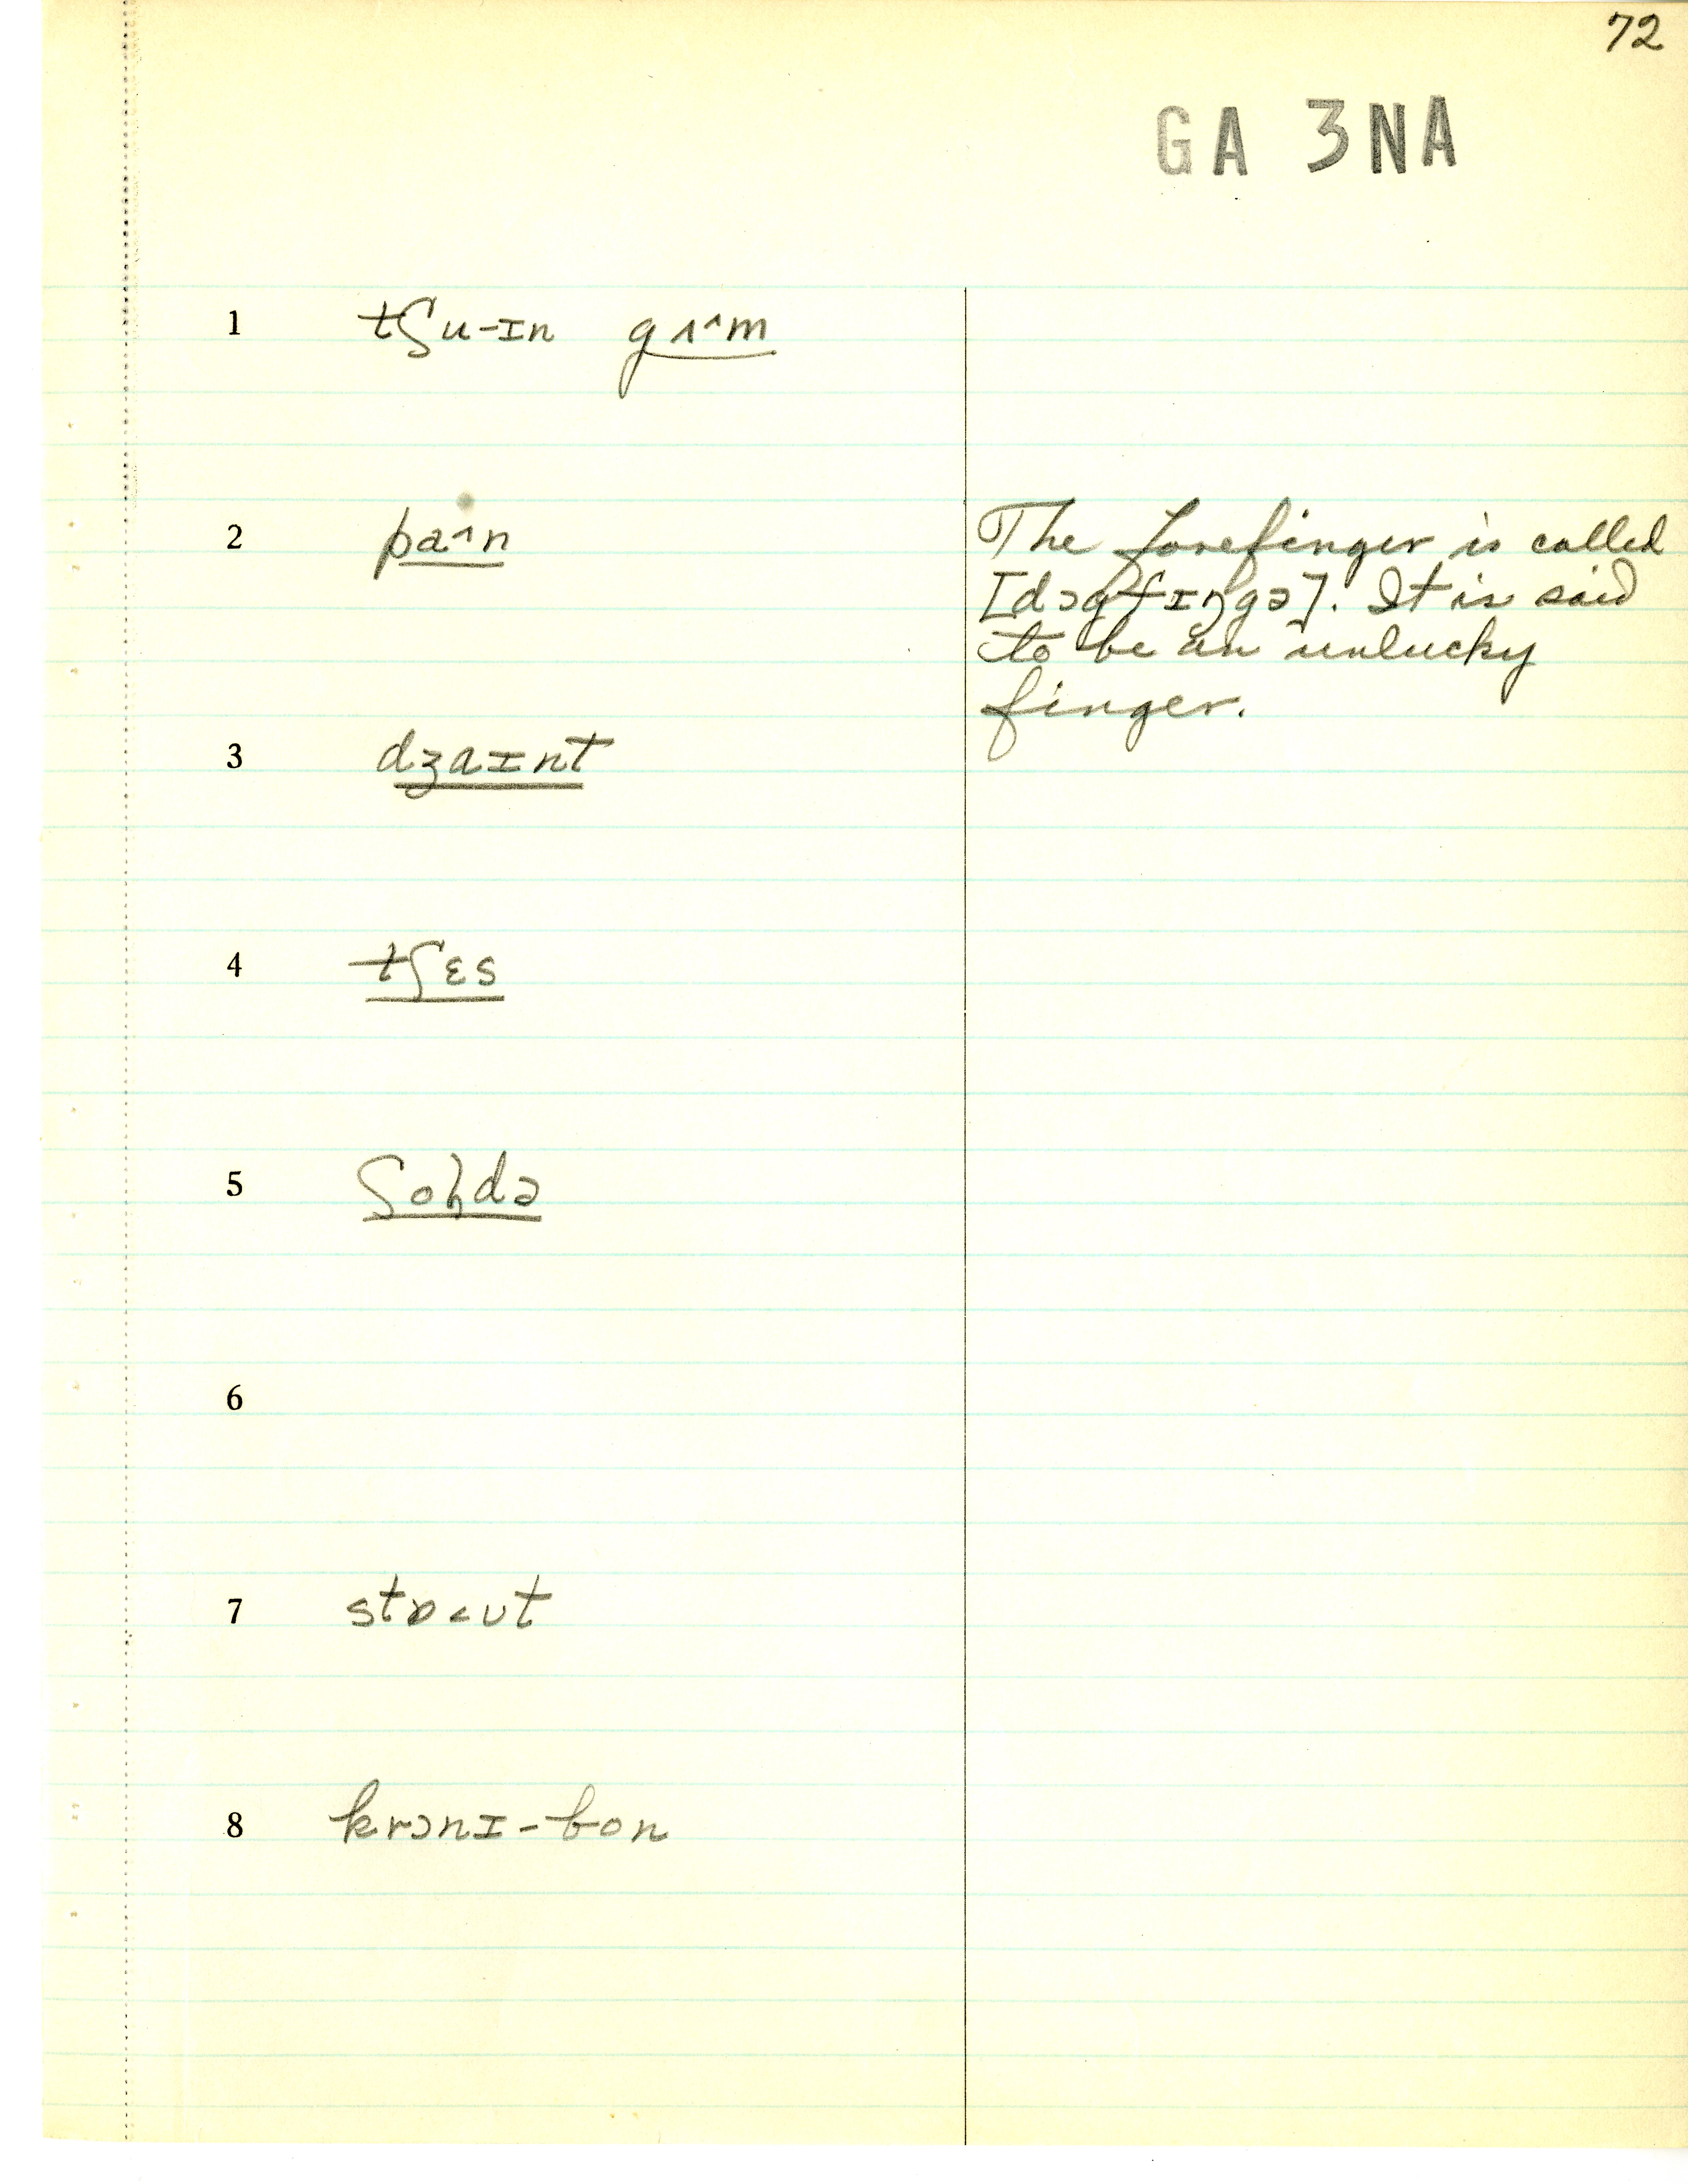 72
GA 3NA
1 tʃu-ɪn gʌ˄m
2 pa˄n The forefinger is called
[dɔgfɪŋgə]. It is said
to be an unlucky
finger.
3 dʒaɪnt
4 tʃɛs
5 ʃoɫdə
6
7 stɒ˂ʊt
8 krɔnɪ-bon